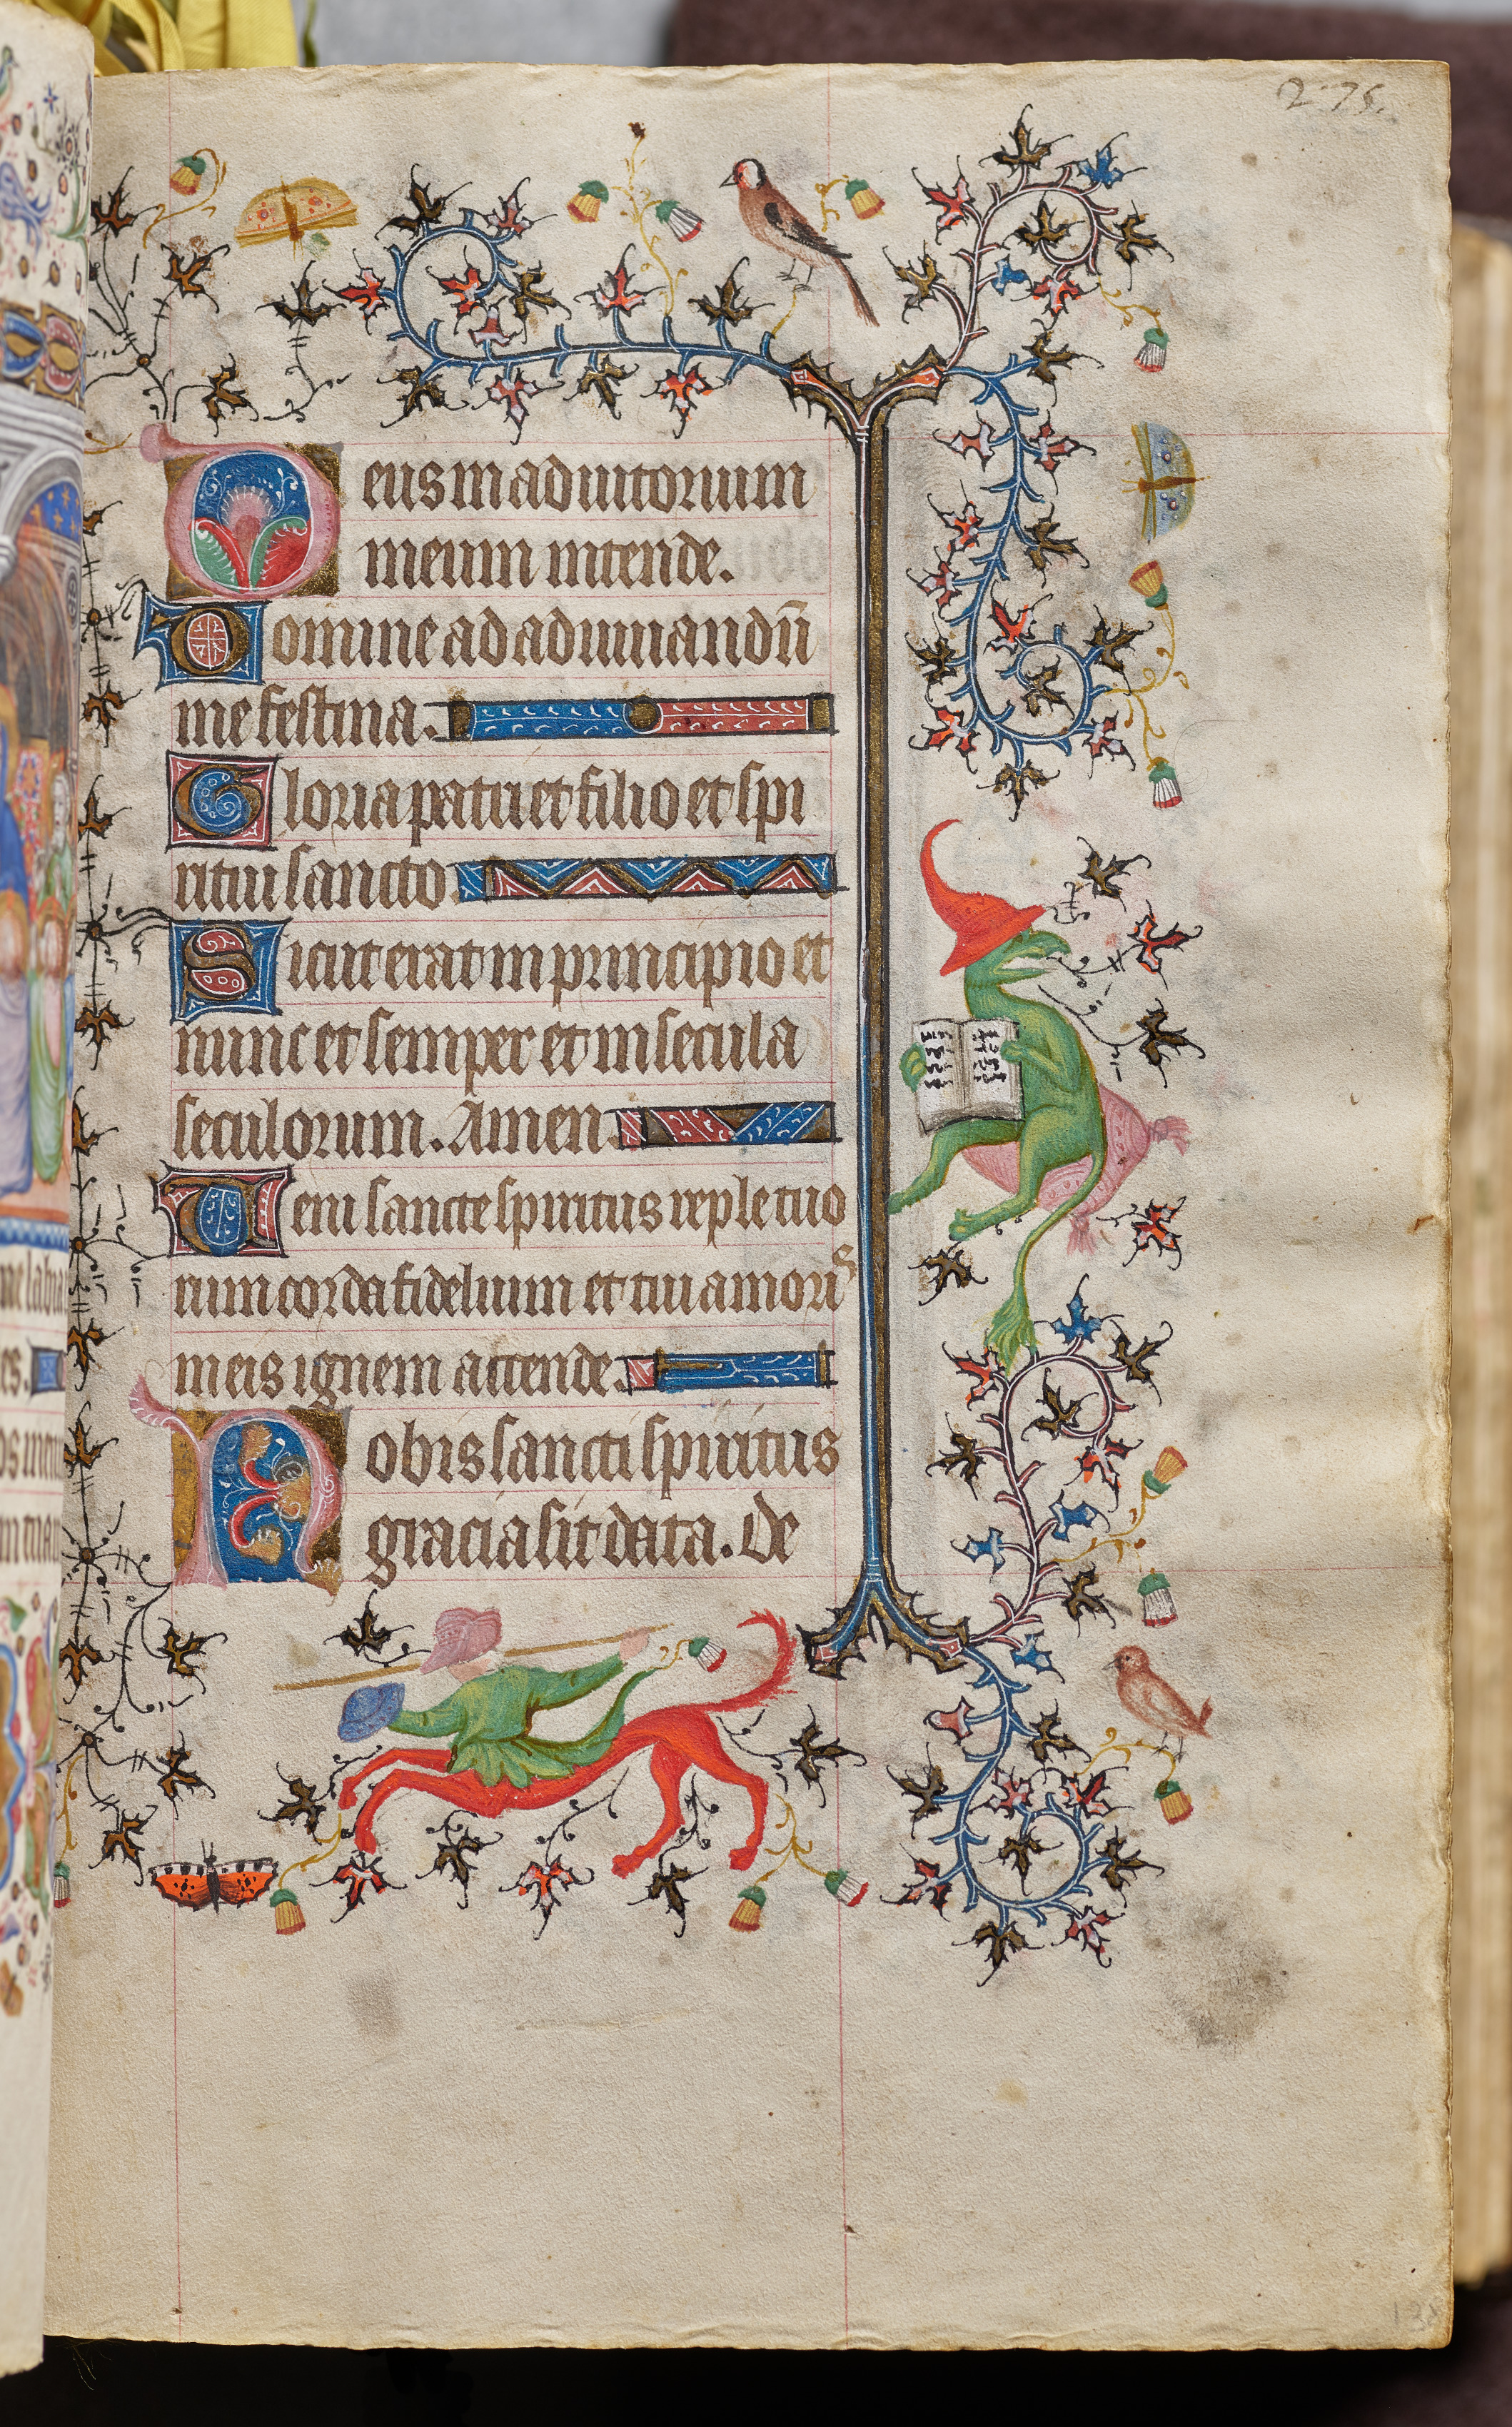 275.
Deus in adiutorium
meum intende.
Domine ad adiuuandū
me festina.
Gloria patri et filio et spi
ritui sancto.
Sicut erat in principio et
nunc et semper et in secula
seculorum. Amen.
Ueni sancte spiritus reple tuo
rum corda fidelium et tui amoris
in eis ignem accende.
Nobis sancti spiritus
gracia sit data. De